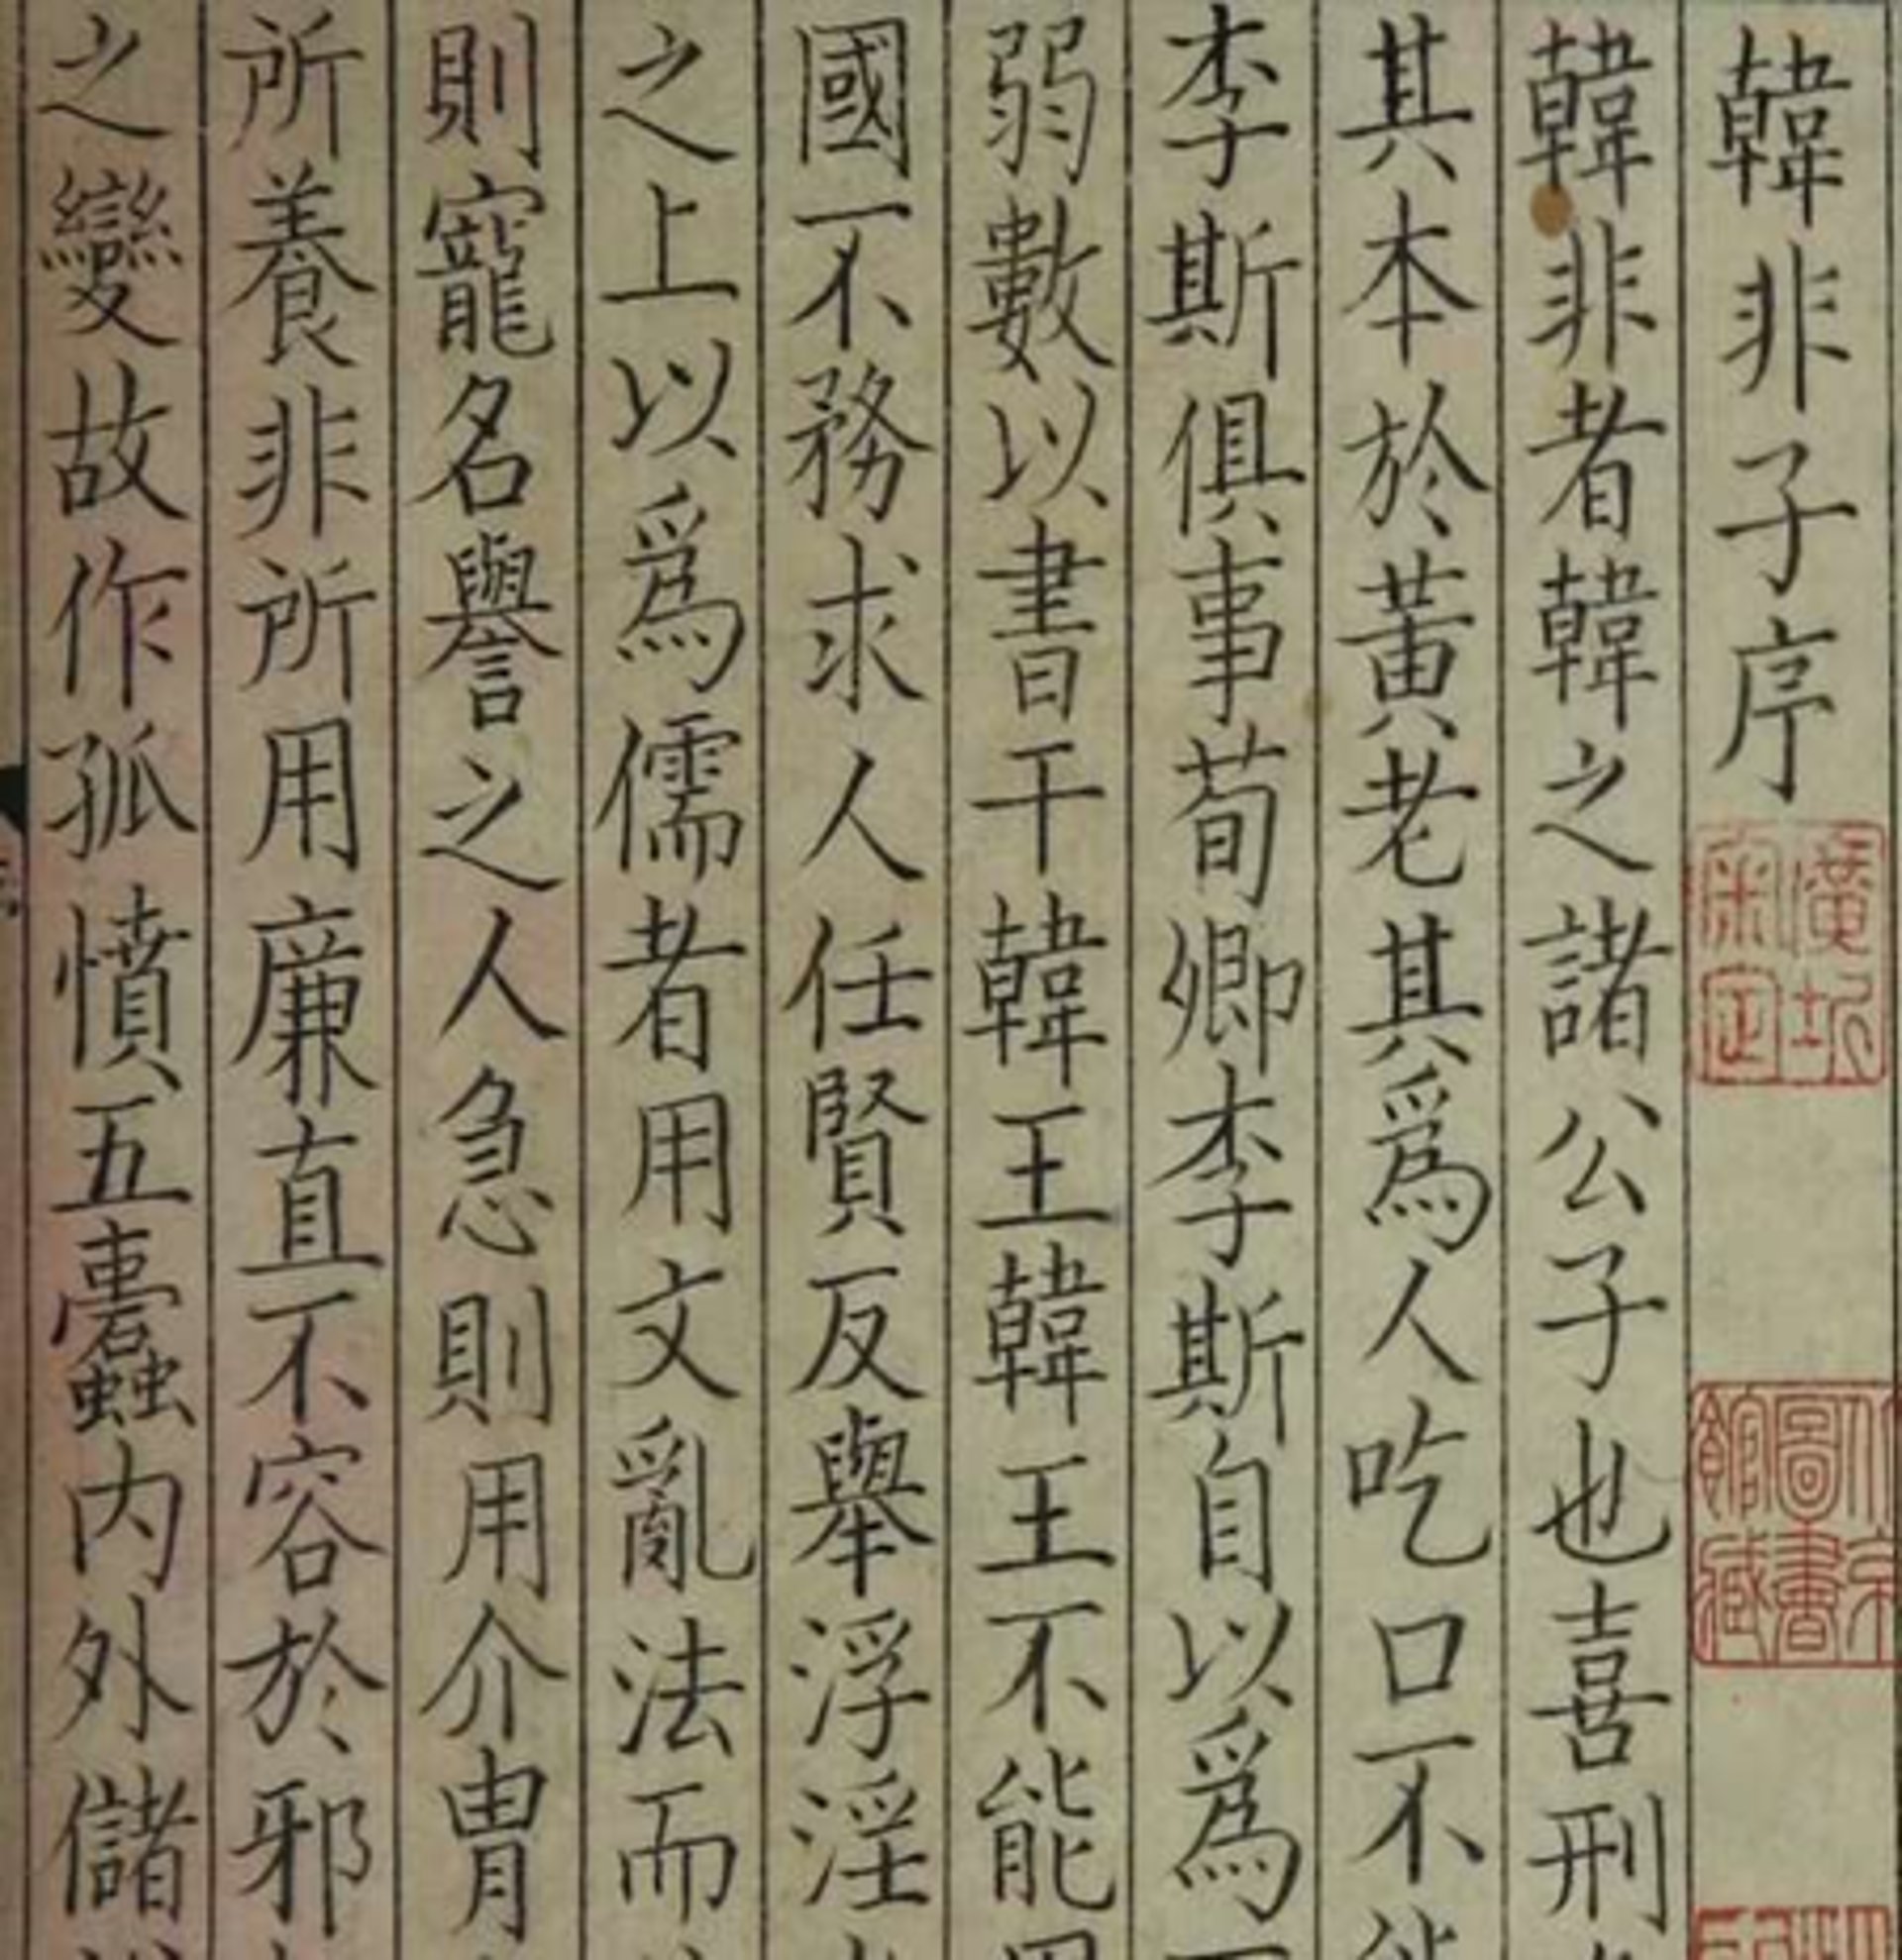 韓非子序
韓非者韓之諸公子也喜刑
其本於黃老其爲人吃口不
李斯俱事荀卿李斯自以爲
弱數以書干韓王韓王不能
國不務求人任賢反舉浮淫
之上以爲儒者用文亂法而
則寵名譽之人急則用介胄
所養非所用廉直不容於邪
之變故作孤憤五蠹内外儲
圖書
館藏